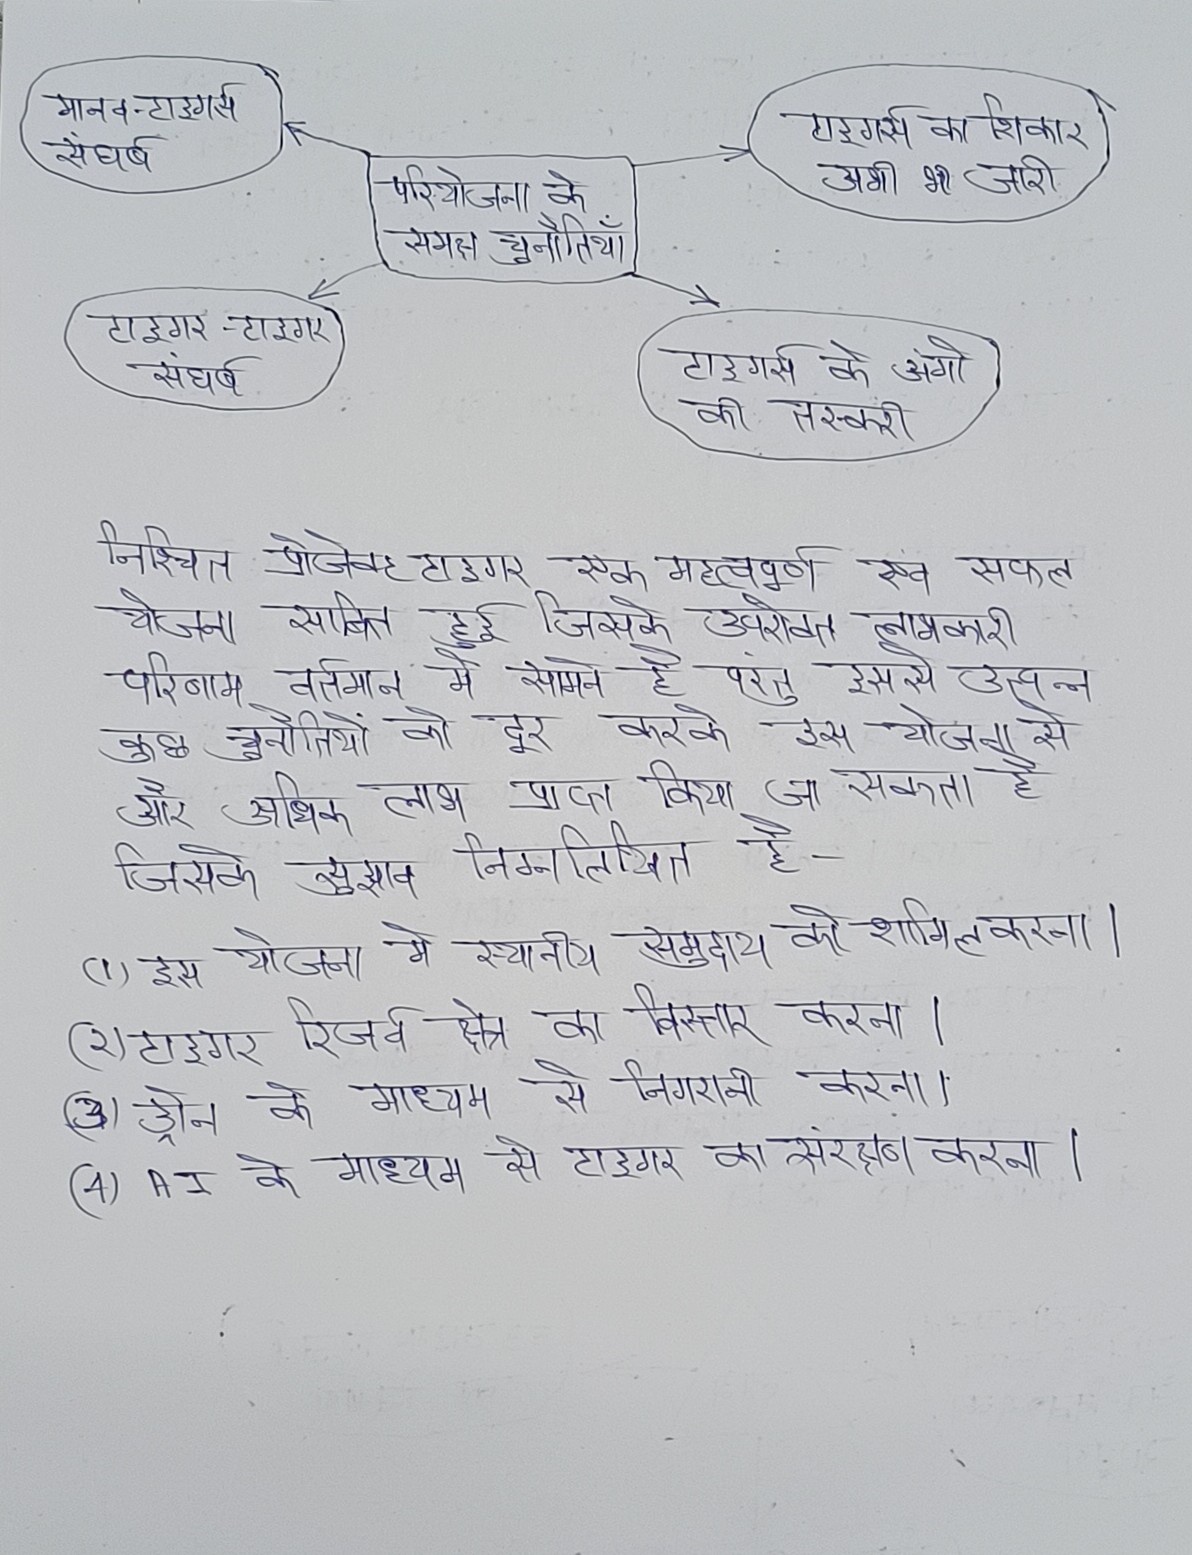 मानव-टाइगर्स
संघर्ष
टाइगर्स का शिकार
अभी भी जारी
परियोजना के
समक्ष चुनौतियाँ
टाइगर-टाइगर
संघर्ष
टाइगर्स के अंगो
की तस्करी
निश्चित प्रोजेक्ट टाइगर एक महत्वपूर्ण एवं सफल
योजना साबित हुई जिसके उपरोक्त लाभकारी
परिणाम वर्तमान में सामने है परंतु इससे उत्पन्न
कुछ चुनौतियों को दूर करके इस योजना से
और अधिक लाभ प्राप्त किया जा सकता है
जिसके सुझाव निम्नलिखित है -
(1) इस योजना मे स्थानीय समुदाय को शामिल करना।
(2) टाइगर रिजर्व क्षेत्र का विस्तार करना।
(3) ड्रोन के माध्यम से निगरानी करना।
(4) AI के माध्यम से टाइगर का संरक्षण करना।